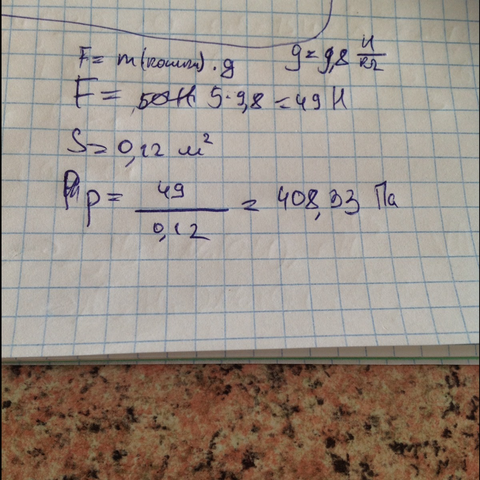 F = m(кошки) · g g = 9,8 Н/кг
F = 5·9,8 = 49 Н
S = 0,12 м²
p = 49/0,12 = 408,33 Па